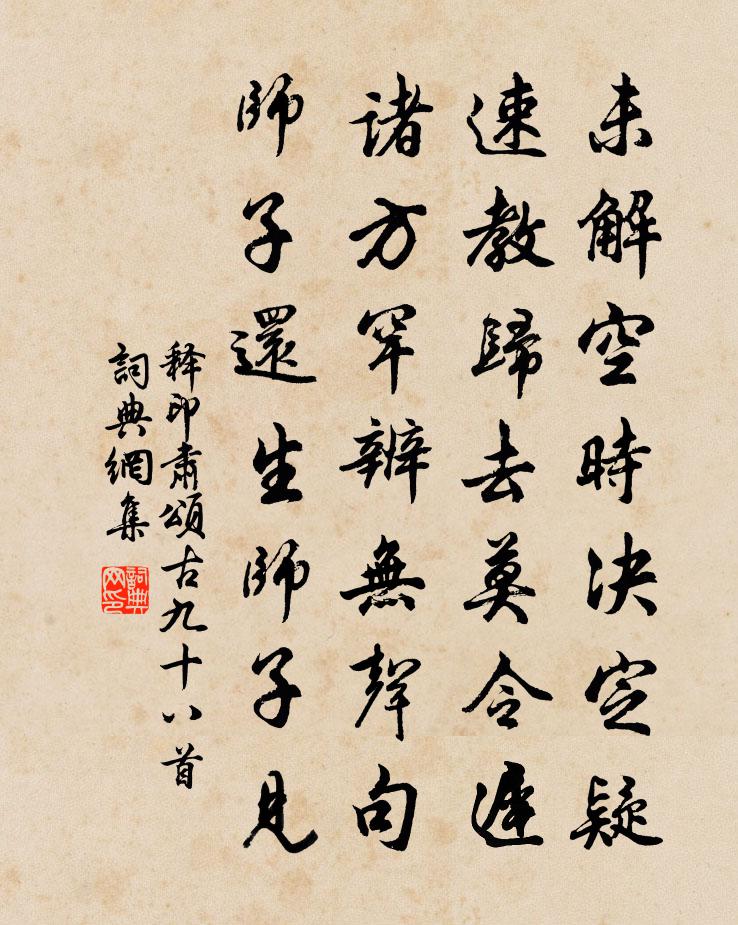 未解空時決定疑
速教歸去莫令遲
諸方罕辨無聲句
師子還生師子見
释印肅頌古九十八首
詞典網集
詞典网印